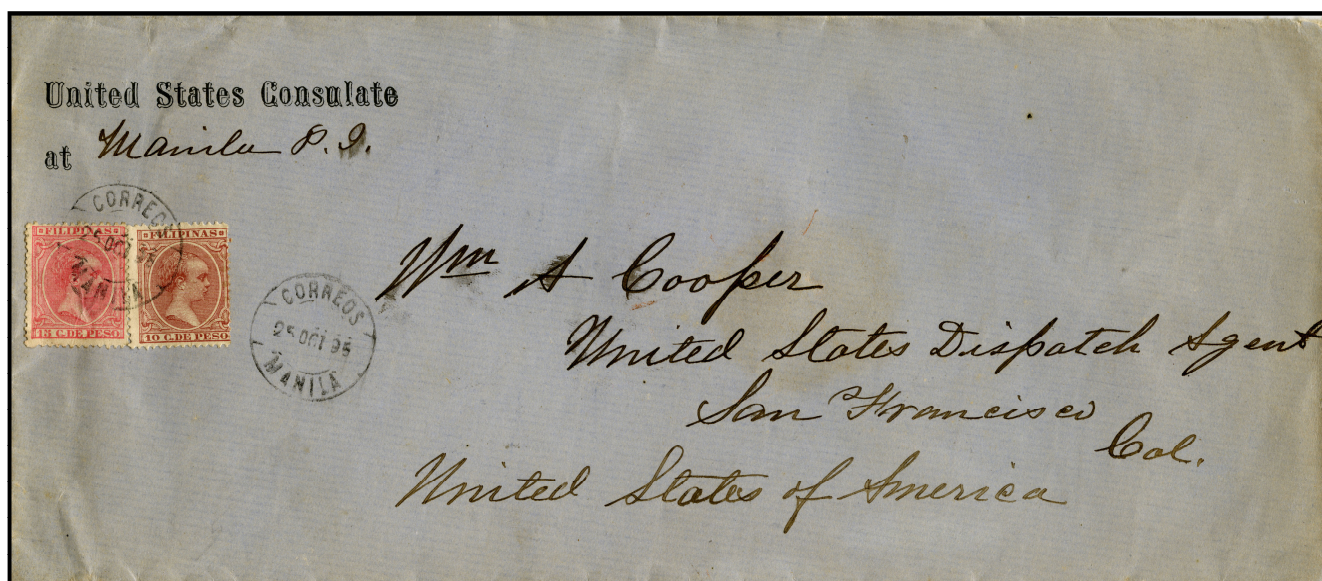 United States Consulate
at Manila P.I.
CORREOS
25 OCT 95
MANILA
FILIPINAS
15 C. DE PESO
FILIPINAS
10 C. DE PESO
CORREOS
25 OCT 95
MANILA
Wm A Cooper
United States Dispatch Agent
San Francisco
Cal.
United States of America